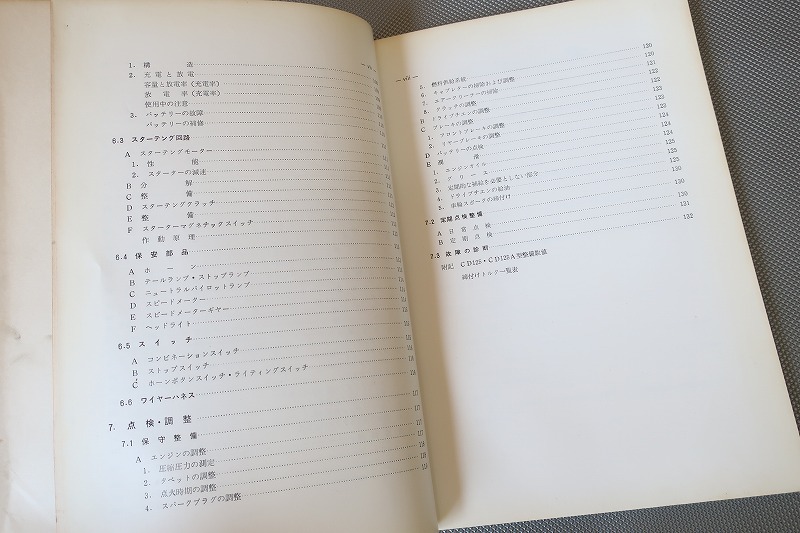 1. 構造
2. 充電と放電
容量と放電率(充電率)
放電率(充電率)
使用中の注意
3. バッテリーの故障
バッテリーの補修
6.3 スターテング回路
A スターテングモーター
1. 性能
2. スターターの減速
B 分解
C 整備
D スターテングクラッチ
E 整備
F スターターマグネチックスイッチ
作動原理
6.4 保安部品
A ホーン
B テールランプ・ストップランプ
C ニュートラルパイロットランプ
D スピードメーター
E スピードメーターギヤー
F ヘッドライト
6.5 スイッチ
A コンビネーションスイッチ
B ストップスイッチ
C ホーンボタンスイッチ・ライティングスイッチ
6.6 ワイヤーハネス
7. 点検・調整 117
7.1 保守整備 117
A エンジンの調整 117
1. 圧縮圧力の測定
2. タペットの調整 118
3. 点火時期の調整 118
4. スパークプラグの調整
— vii —
5. 燃料供給系統 120
6. キャブレターの掃除および調整 120
7. エアークリーナーの掃除 121
8. クラッチの調整 122
B ドライブチェンの調整 122
C ブレーキの調整 123
1. フロントブレーキの調整 123
2. リヤーブレーキの調整 124
D バッテリーの点検 124
E 潤滑 124
1. エンジンオイル 125
2. グリース 125
3. 定期的な補給を必要としない部分
4. ドライブチエンの給油
5. 車輪スポークの締付け
7.2 定期点検整備 130
A 日常点検 130
B 定期点検 130
7.3 故障の診断 132
附記 CD125・CD125A型整備数値
締付けトルク一覧表